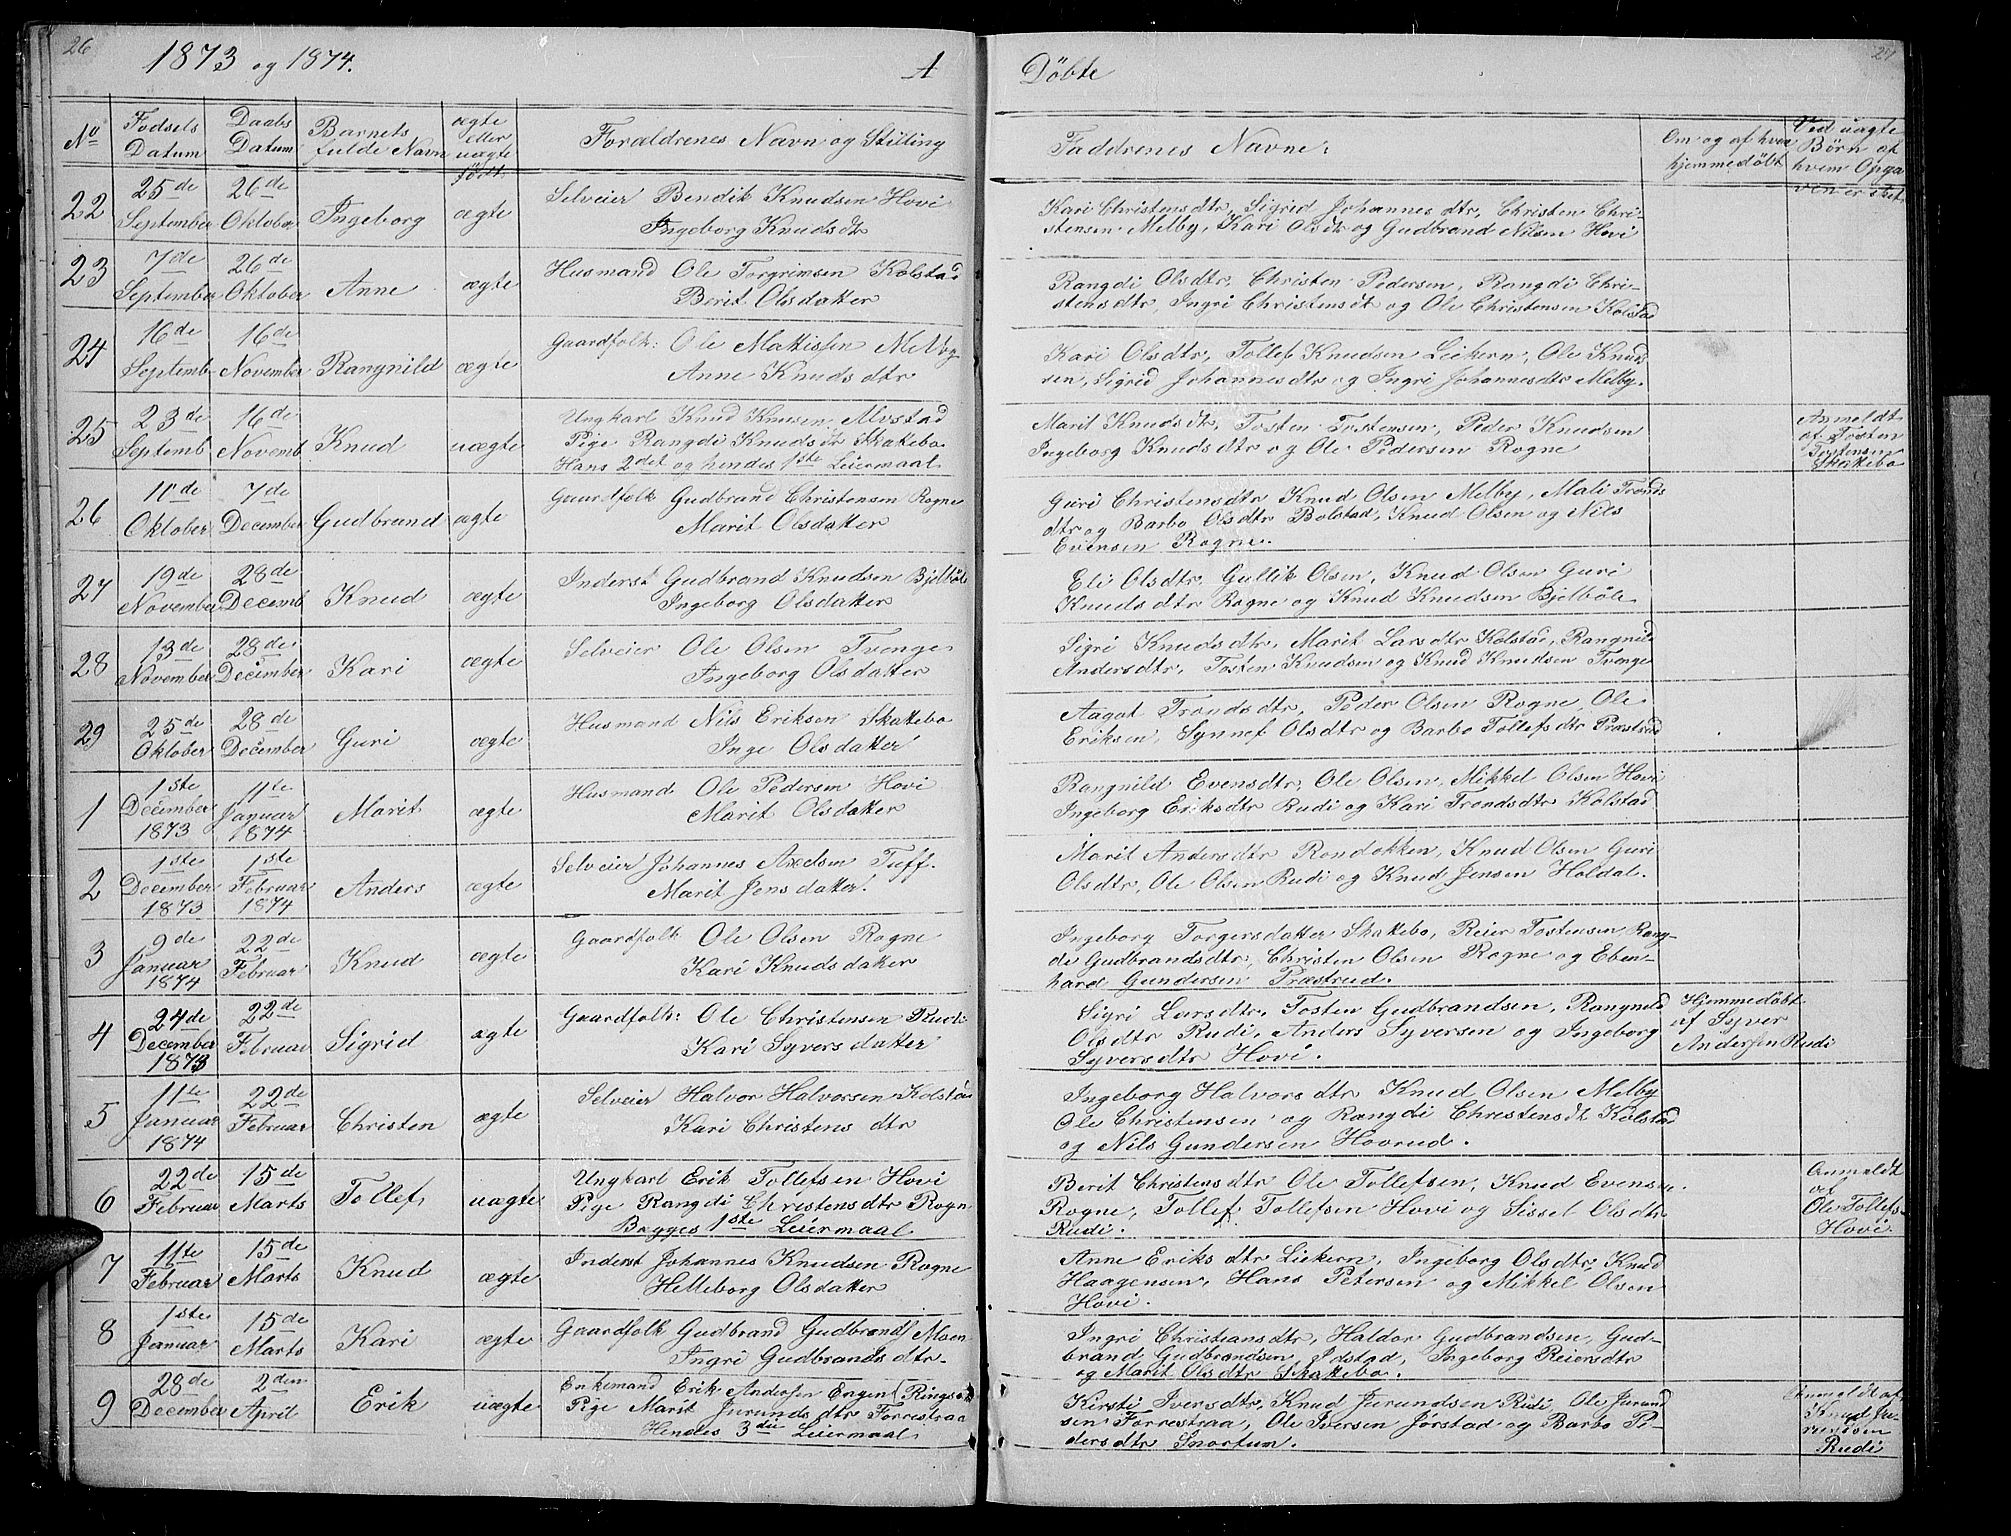 26
1873 og 1874.
A
Döbte
27
No
Fødsels Datum
Daabs Datum
Barnets fulde Navn
ægte eller uægte født.
Forældrenes Navn og Stilling
Faddrenes Navne.
Om og af hvem hjemmedöbt
Ved uægte Børn af hvem Opgaven er skeet
22 25de September 26de Oktober Ingeborg ægte
Selveier Bendik Knudsen Hovi
Ingeborg Knudsdtr
Kari Christensdtr, Sigrid Johannesdtr, Christen Chri-
stensen Melby, Kari Olsdtr og Gudbrand Nilsen Hovi
23 7de September 26de Oktober Anne ægte
Husmand Ole Torgrimsen Kolstad
Berit Olsdatter
Rangdi Olsdtr, Christen Pedersen, Rangdi Chri-
stensdtr, Ingri Christensdt og Ole Christensen Kolstad
24 16de Septemb 16de November Rangnild ægte
Gaardfolk: Ole Mattissen Melby
Anne Knudsdtr
Kari Olsdtr, Tollef Knudsen Liekern, Ole Knud-
sen, Sigrid Johannesdtr og Ingri Johannesdtr Melby.
25 23de Septemb 16de Novemb Knud uægte
Ungkarl Knud Knusen Alvstad
Pige Rangdi Knudsdt Skatebo
Hans 2det og hendes 1ste Leiermaal
Marit Knudsdt, Tosten Tostensen, Peder Knudsen
Ingeborg Knudsdtr og Ole Pedersen Rogne
Anmeldt af Tosten Tostensen Skatebo
26 10de Oktober 7de December Gudbrand ægte
Gaardfolk Gudbrand Christensen Rogne
Marit Olsdatter
Guri Christensdtr Knud Olsen Melby, Mali Tronds
dtr og Barbo Olsdtr Bolstad, Knud Olsen og Nils
Evensen Rogne.
27 19de November 28de Decemb Knud ægte
Inderst Gudbrand Knudsen Bjelböle
Ingeborg Olsdatter
Eli Olsdtr. Gullik Olsen, Knud Olsen Guri
Knudsdtr Rogne og Knud Knudsen Bjelböle
28 13de November 28de December Kari ægte
Selveier Ole Olsen Tvenge
Ingeborg Olsdatter
Sigri Knudsdtr, Marit Larsdtr Kolstad, Rangnild
Andersdtr, Tosten Knudsen og Knud Knudsen Tvenge
29 25de Oktober 28de December Guri ægte
Husmand Nils Eriksen Skattebo
Inge Olsdatter
Aagot Trondsdtr, Peder Olsen Rogne, Ole
Eriksen, Synnef Olsdtr og Barbo Tollefsdtr Præstrud
1 1ste December 1873 11te Januar 1874 Marit ægte
Husmand Ole Pedersen Hovi
Marit Olsdatter
Rangnild Evensdtr, Ole Olsen, Mikkel Olsen Hovi
Ingeborg Eriksdtr Rudi og Kari Trondsdtr Kolstad
2 1ste December 1873 1ste Februar 1874 Anders ægte
Selveier Johannes Axelsen Tuff.
Marit Jensdatter
Marit Andersdtr Rondokken, Knud Olsen Guri
Olsdtr, Ole Olsen Rudi og Knud Jensen Holdal.
3 9de Januar 1874 22de Februar Knud ægte
Gaardfolk Ole Olsen Rogne
Kari Knudsdatter
Ingeborg Torgersdatter Skatebo, Reier Tostensen, Rang-
di Gudbrandsdtr, Christen Olsen Rogne og Eben-
hard Gundersen Præstrud.
4 24de December 1873 22de Februar Sigrid ægte
Gaardfolk: Ole Christensen Rudi
Kari Syversdatter
Sigri Larsdtr, Tosten Gudbrandsen, Rangnild
Olsdtr Rudi, Anders Syversen og Ingeborg
Syversdtr Hovi.
Hjemmedöbt af Syver Andersen Rudi
5 11te Januar 1874 22de Februar Christen ægte
Selveier Halvor Halvorsen Kolstad
Kari Christensdtr
Ingeborg Halvorsdtr Knud Olsen Melby
Ole Christensen og Rangdi Christensdt Kolstad
og Nils Gundersen Hovrud.
6 22de Februar 15de Marts Tollef uægte
Ungkarl Erik Tollefsen Hovi
Pige Rangdi Christensdtr Rogn
Begges 1ste Leiermaal
Berit Christensdtr Ole Tollefsen, Knud Evensen
Rogne, Tollef Tollefsen Hovi og Sissel Olsdtr
Rudi.
Anmeldt af Ole Tollefs. Hovi
7 11te Februar 15de Marts Knud ægte
Inderst Johannes Knudsen Rogne
Helleborg Olsdatter
Anne Eriksdtr Liekern, Ingeborg Olsdtr, Knud
Haagensen, Hans Petersen og Mikkel Olsen
Hovi.
8 1ste Januar 15de Marts Kari ægte
Gaardfolk Gudbrand Gudbrands Moen
Ingri Gudbrandsdtr.
Ingri Christiansdtr, Haldor Gudbrandsen, Gud-
brand Gudbrandsen Jdstad, Ingeborg Reiersdtr
og Marit Olsdtr Skattebo.
9 28de December 2den April Erik uægte
Enkemand Erik Andersen Engen (Ringsak
Pige Marit Jurundsdtr Forrestraa
Hendes 3die Leiermaal
Kirsti Iversdtr, Knud Jurundsen Rudi, Ole Jurund
sen Forrestraa, Ole Iversen Jørstad og Barbo Pe-
dersdtr Snortum.
Anmeldt af Knud Ju-
rundsen
Rudi